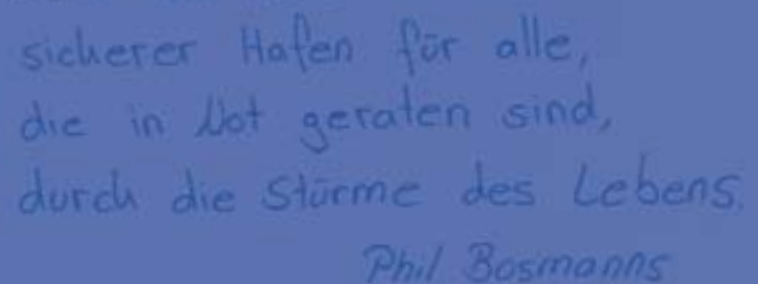 sicherer Hafen für alle,
die in Not geraten sind,
durch die Stürme des Lebens.
Phil Bosmanns